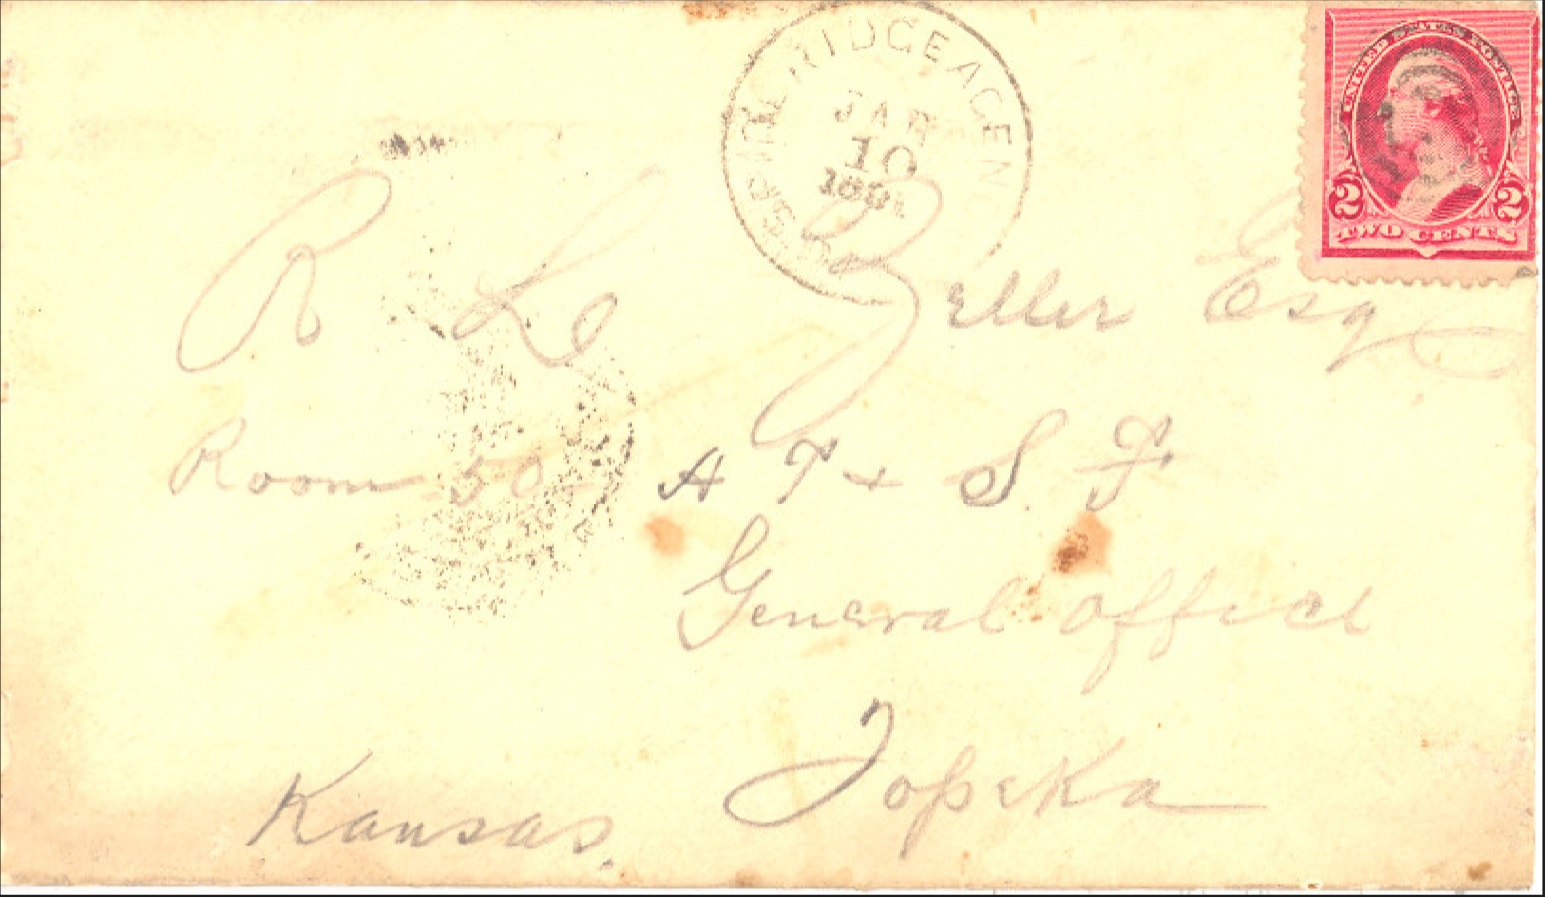 PINE RIDGE AGEN
JAN
10
1891
UNITED STATES POSTAGE
2 2
TWO CENTS
R L Zeller Esq
Room 50 A T + S. F
General Office
Topeka
Kansas.